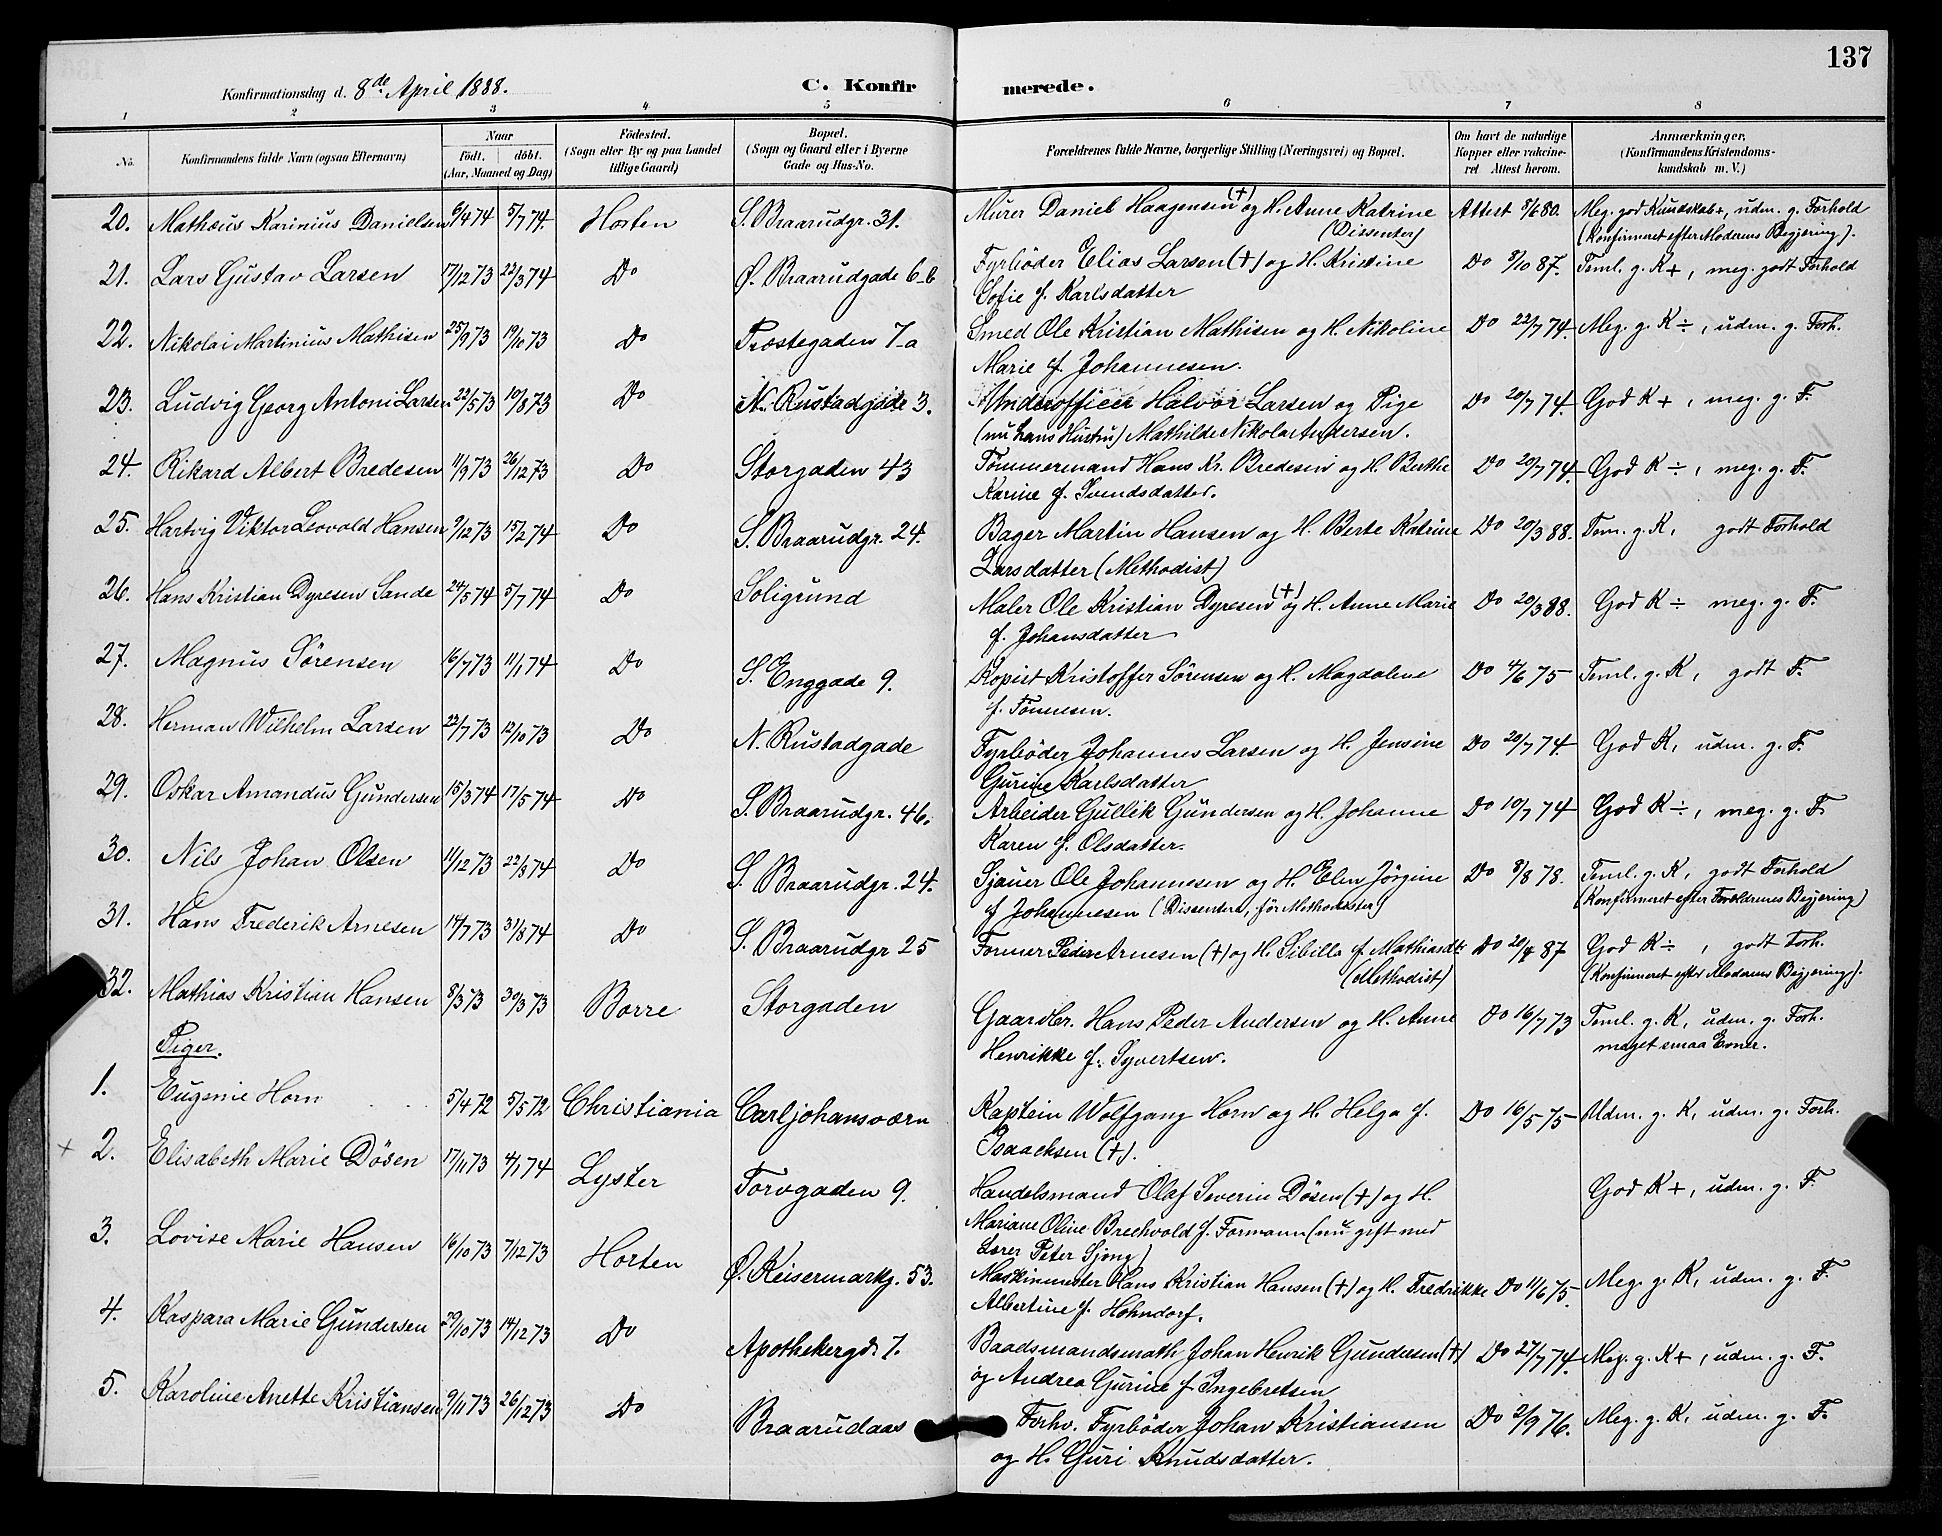 137
Konfirmationsdag d. 8de April 1888. C. Konfirmerede.
1 2 3 4 5 6 7 8
No. Konfirmandens fulde Navn (ogsaa Efternavn) Naar födt. döbt. (Aar, Maaned og Dag) Födested. (Sogn eller By og paa Landet tillige Gaard) Bopæl. (Sogn og Gaard eller i Byerne Gade og Hus-No. Forældrenes fulde Navne, borgerlige Stilling (Næringsvei) og Bopæl. Om havt de naturlige Kopper eller vakcineret Attest herom. Anmærkninger, (Konfirmandens Kristendomskundskab m. V.)
20. Mathæus Karinius Danielsen 6/4 74 5/7 74. Horten S. Braarudgr. 31. Murer Daniel Haagensen (+) og H. Anne Katrine Attest 8/6 80. Meg. god Kundskab +, udm. g. Forhold
(Dissenter) (Konfirmeret efter Moderens Begjering).
21. Lars Gustav Larsen 17/12 73 22/3 74 Do Ø. Braarudgade 6-b Fyrbøder Elias Larsen (+) og H. Kristine Do 3/10 87. Teml. g. K +, meg. godt Forhold
Sofie f. Karlsdatter
22. Nikolai Martinius Mathisen 25/9 73 19/10 73 Do Præstegaden 7-a Smed Ole Kristian Mathisen og H. Nikoline Do 22/7 74. Meg. g. K ÷, udm. g. Forh.
Marie f. Johannesen.
23. Ludvig Georg Antoni Larsen 22/5 73 10/8 73 Do N. Rustadgade 3. Underofficer Halvor Larsen og Pige Do 20/7 74. God K +, meg. g. F.
(nu hans Hustru) Mathilde Nikola Andersen.
24. Rikard Albert Bredesen 11/9 73 26/12 73 Do Storgaden 43 Tømmermand Hans Kr. Bredesen og H. Berthe Do 20/7 74. God K ÷, meg. g. F.
Karine f. Svendsdatter.
25. Hartvig Viktor Leovald Hansen 9/12 73 15/2 74 Do S. Braarudgr. 24. Bager Martin Hansen og H. Berte Katrine Do 20/3 88. Tem. g. K, godt Forhold
Larsdatter (Methodist)
26. Hans Kristian Dyresen Sande 24/5 74 5/7 74 Do Soligrund Maler Ole Kristian Dyresen (+) og H. Anne Marie Do 20/3 88. God K ÷ meg. g. F.
f. Johansdatter
27. Magnus Sørensen 16/7 73 11/1 74 Do S. Enggade 9. Kopist Kristoffer Sørensen og H. Magdalene Do 4/6 75 Teml. g. K, godt F.
f. Tønnesen.
28. Herman Wilhelm Larsen 22/7 73 12/10 73 Do N. Rustadgade Fyrbøder Johannes Larsen og H. Jensine Do 20/7 74. God K, udm. g. F.
Gurine Karlsdatter
29. Oskar Amandus Gundersen 15/3 74 17/5 74 Do S. Braarudgr. 46. Arbeider Gullik Gundersen og H. Johanne Do 10/7 74 God K ÷, meg. g. F.
Karen f. Olsdatter.
30. Nils Johan Olsen 11/12 73 22/3 74 Do S. Braarudgr. 24. Sjauer Ole Johannesen og H. Elen Jørgine Do 8/8 78. Teml. g. K, godt Forhold
f. Johannesen (Dissentere, før Methodister) (Konfirmeret efter Forældrenes Begjering)
31. Hans Frederik Arnesen 14/7 73 31/8 74 Do S. Braarudgr 25 Former Peder Arnesen (+) og H. Sibilla f. Mathiasdtr Do 20/4 87 God K ÷, godt Forh.
(Methodist) (Konfirmeret efter Moderens Begjering).
32. Mathias Kristian Hansen 8/3 73 30/3 73 Borre Storgaden Gaardbr. Hans Peder Andersen og H. Anne Do 16/7 73 Teml. g. K, udm. g. Forh.
Henrikke f. Syvertsen. meget smaa Evner.
Piger.
1. Eugenie Horn 5/4 72 5/5 72 Christiania Carljohansværn Kaptein Wolfgang Horn og H. Helga f. Do 16/5 75 Udm. g. K, udm. g. Forh.
Isaachsen (+).
+ 2. Elisabeth Marie Døsen 17/11 73 4/1 74 Lyster Torvgaden 9. Handelsmand Olaf Severin Døsen (+) og H. God K +, udm. g. F.
Mariane Oline Brechvold f. Formann (nu gift med
Lærer Peter Sjong)
3. Lovise Marie Hansen 16/10 73 7/12 73 Horten Ø. Keisermarkg. 53. Maskinmester Hans Kristian Hansen (+) og H. Fredrikke Do 11/6 75. Meg. g. K, udm. g. F.
Albertine f. Hohndorf.
4. Kaspara Marie Gundersen 29/10 73 14/12 73 Do Apothekergd. 7. Baadsmandsmath Johan Henrik Gundersen (+) Do 27/7 74. Meg. g. K +, udm. g. F.
og Andrea Gurine f. Ingebretsen
5. Karoline Anette Kristiansen 9/11 73 26/12 73 Do Braarudaas Forhv. Fyrbøder Johan Kristiansen Do 2/9 76. Meg. g. K, udm. g. F.
og H. Guri Knudsdatter.